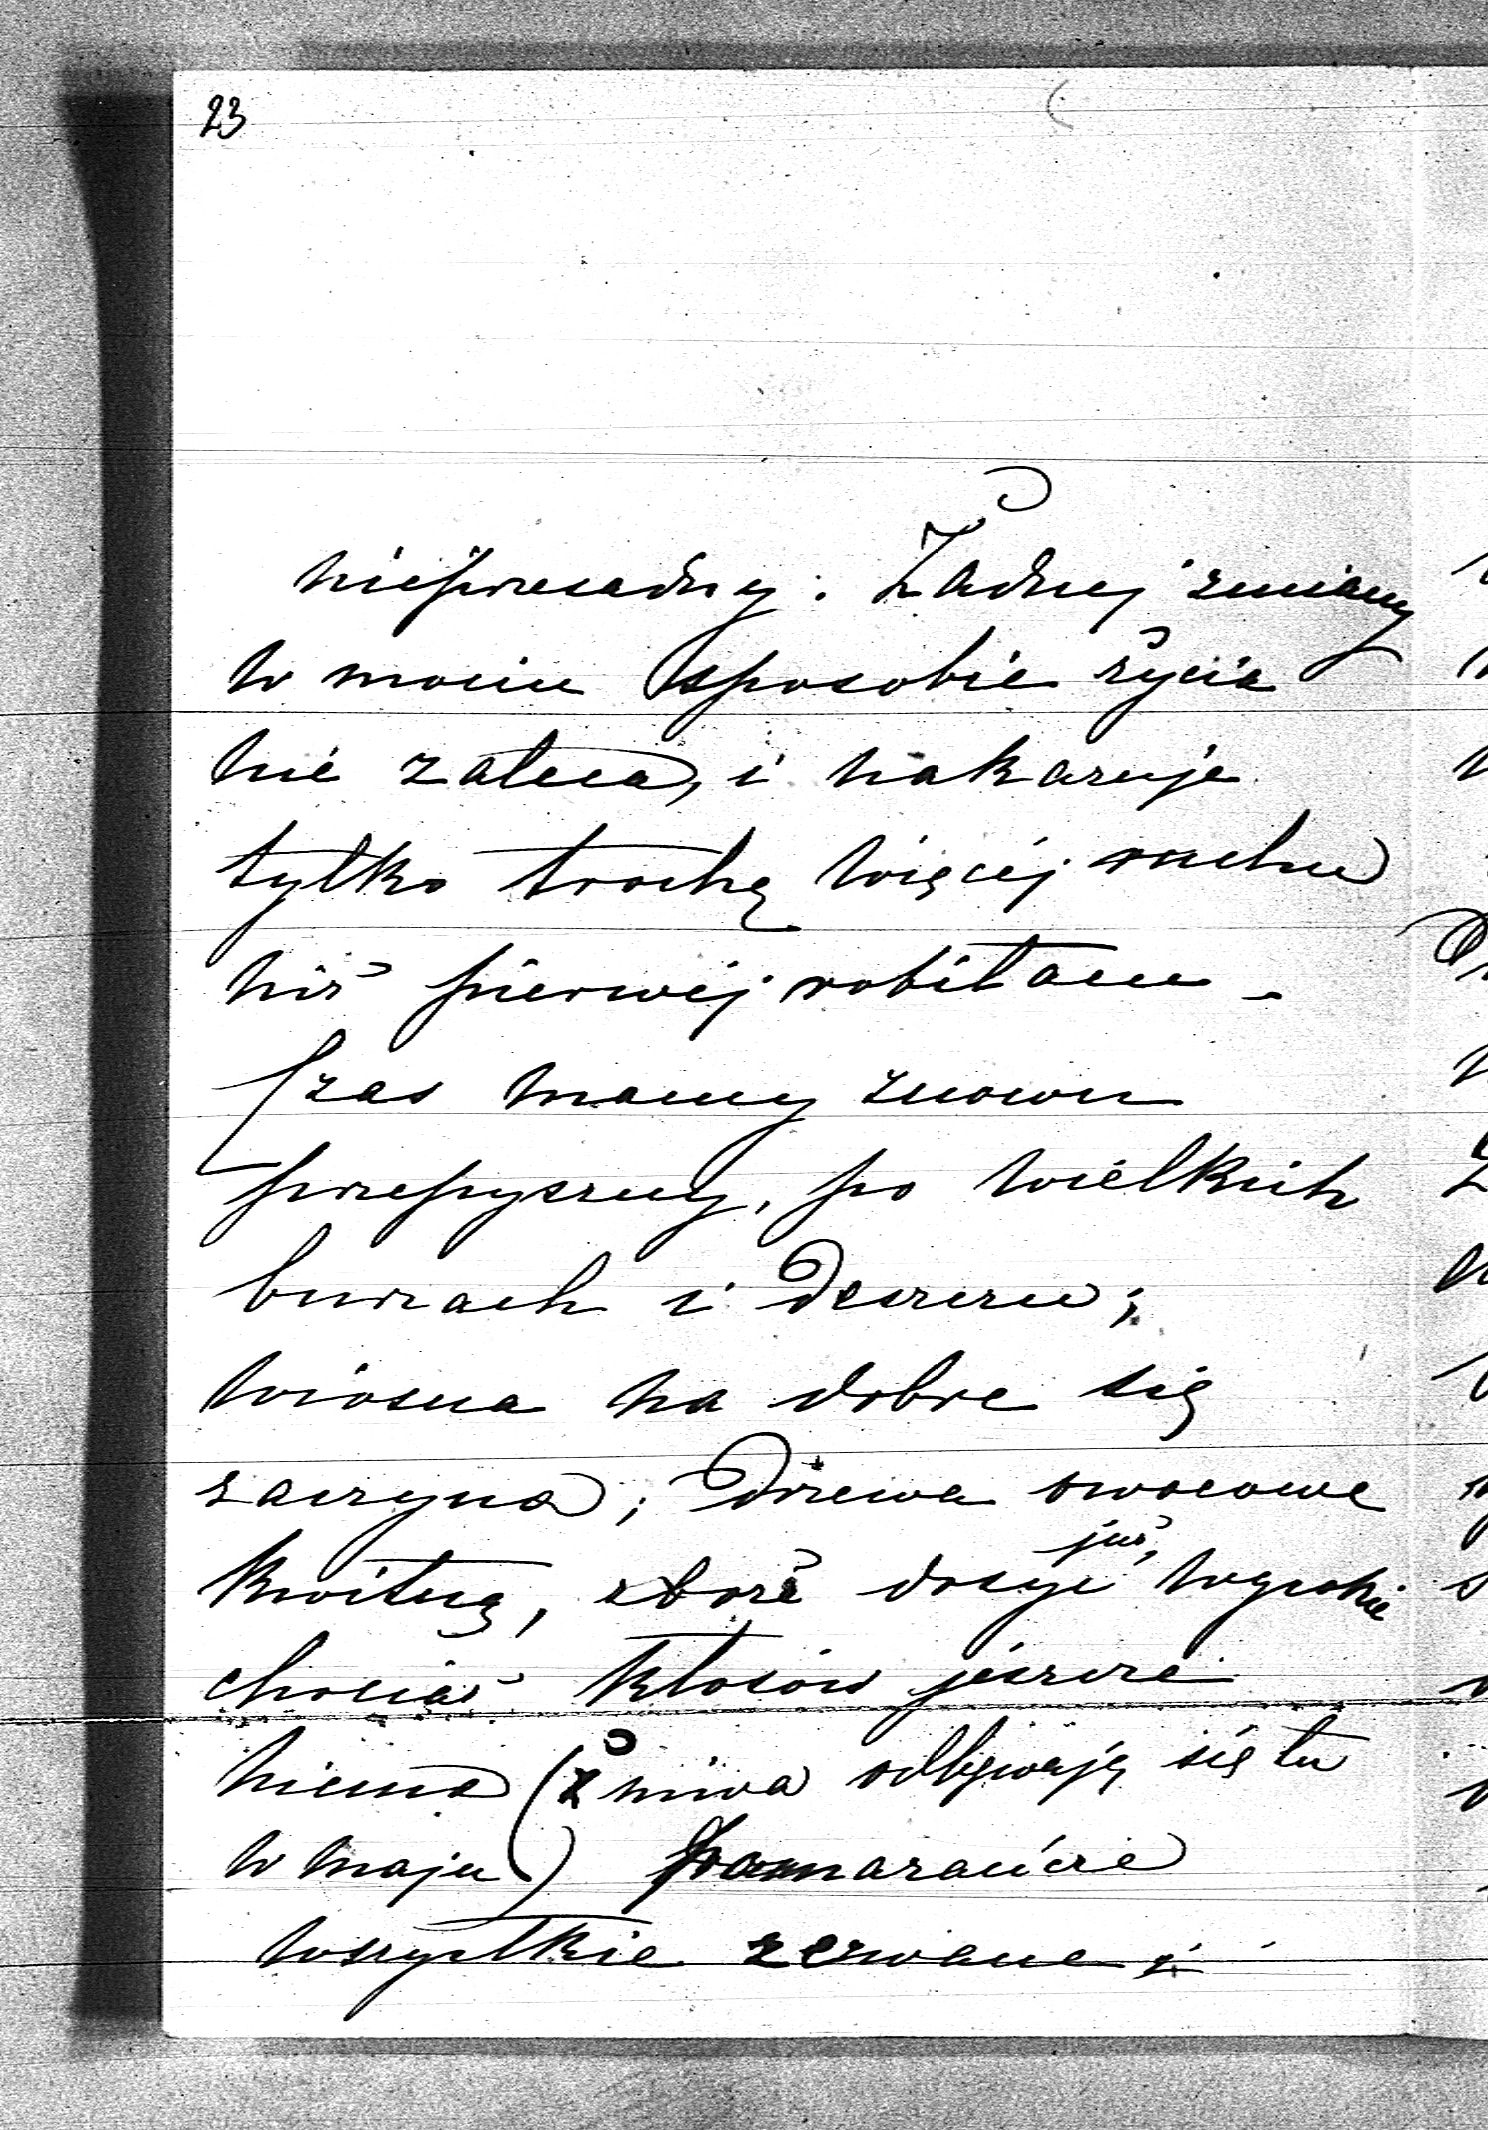 23
nieprzesadny. Żadnej zmiany
w moim sposobie życia
nie zaleca, i nakazuje
tylko trochę więcej ruchu
niż pierwej robiłam.
Czas mamy znowu
przepyszny, po wielkich
burzach i deszczu;
wiosna na dobre się
zaczyna; drzewa owocowe
kwitną, zboże dosyć już, wysokie
chociaż kłosów jeszcze
niema (żniwa odbywają się tu
w maju) Pomarańcze
wszystkie zerwane i